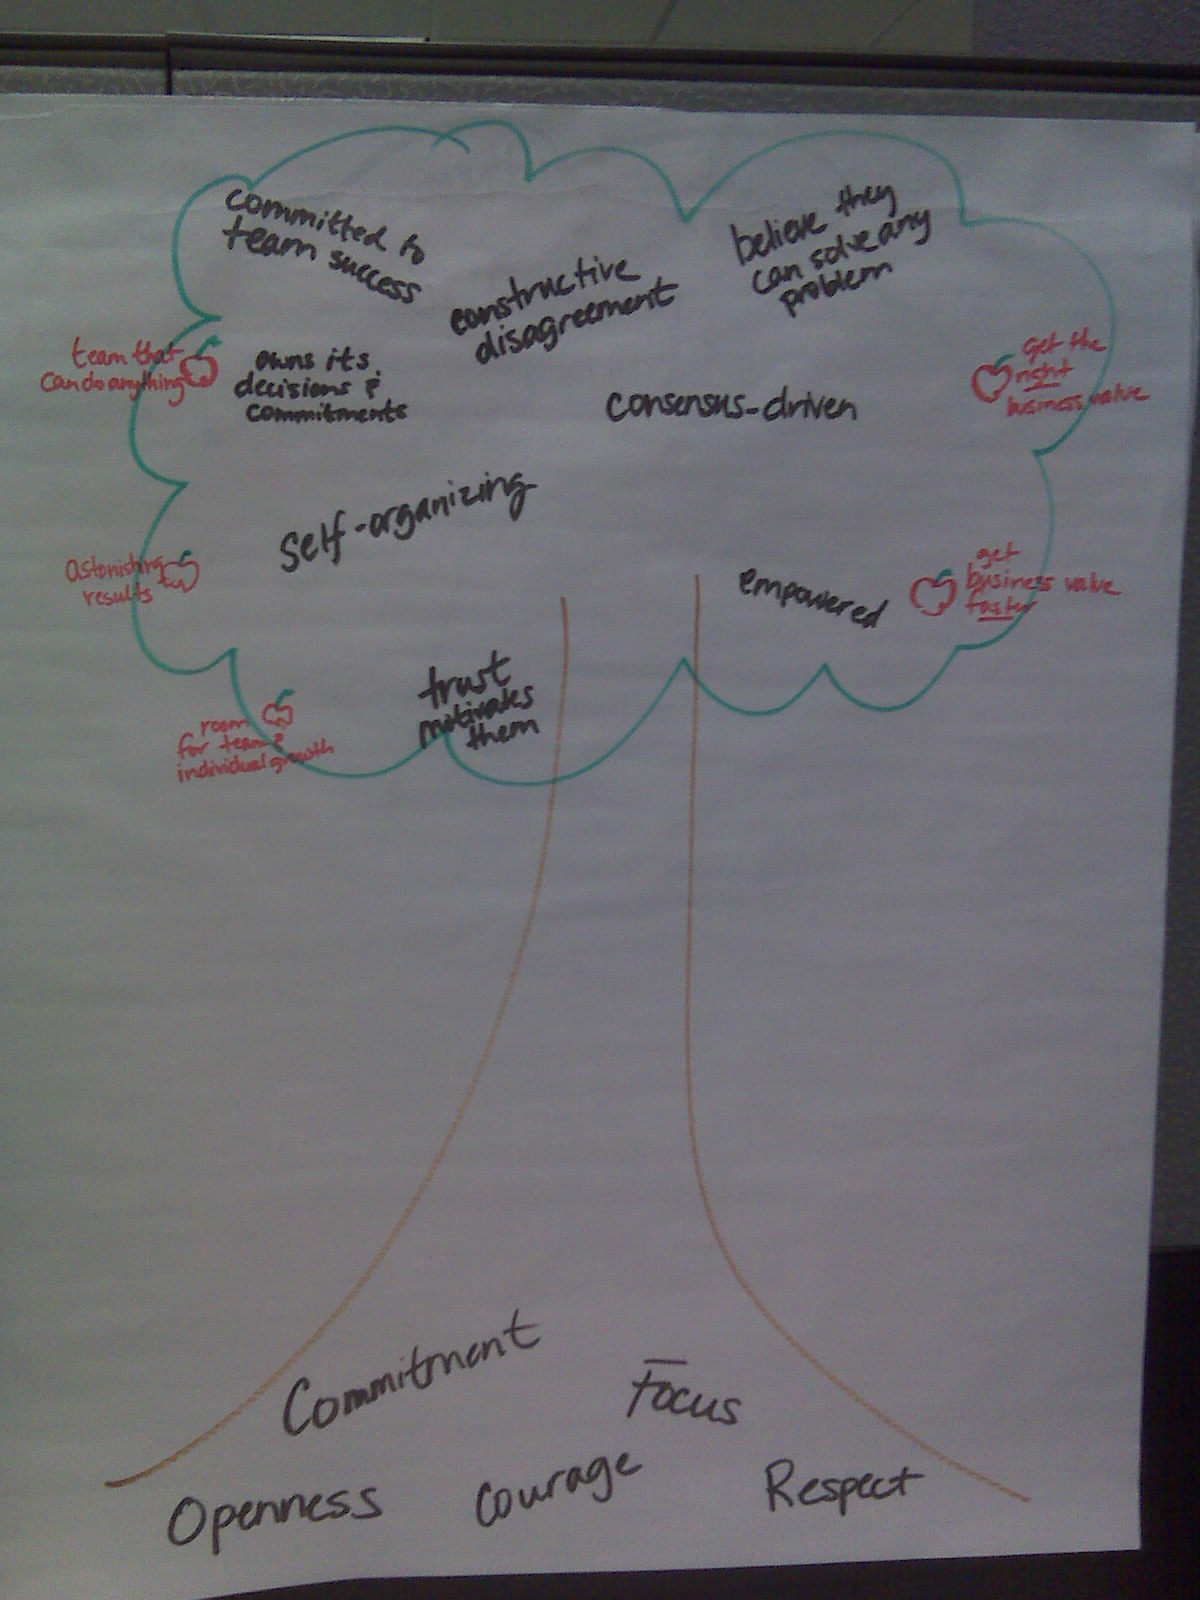 committed to
team success
constructive
disagreement
believe they
can solve any
problem
team that
can do anything
owns its
decisions &
commitments
consensus-driven
get the
right
business value
self-organizing
astonishing
results
empowered
get
business value
faster
trust
motivates
them
room
for team &
individual growth
Commitment
Focus
Openness
Courage
Respect